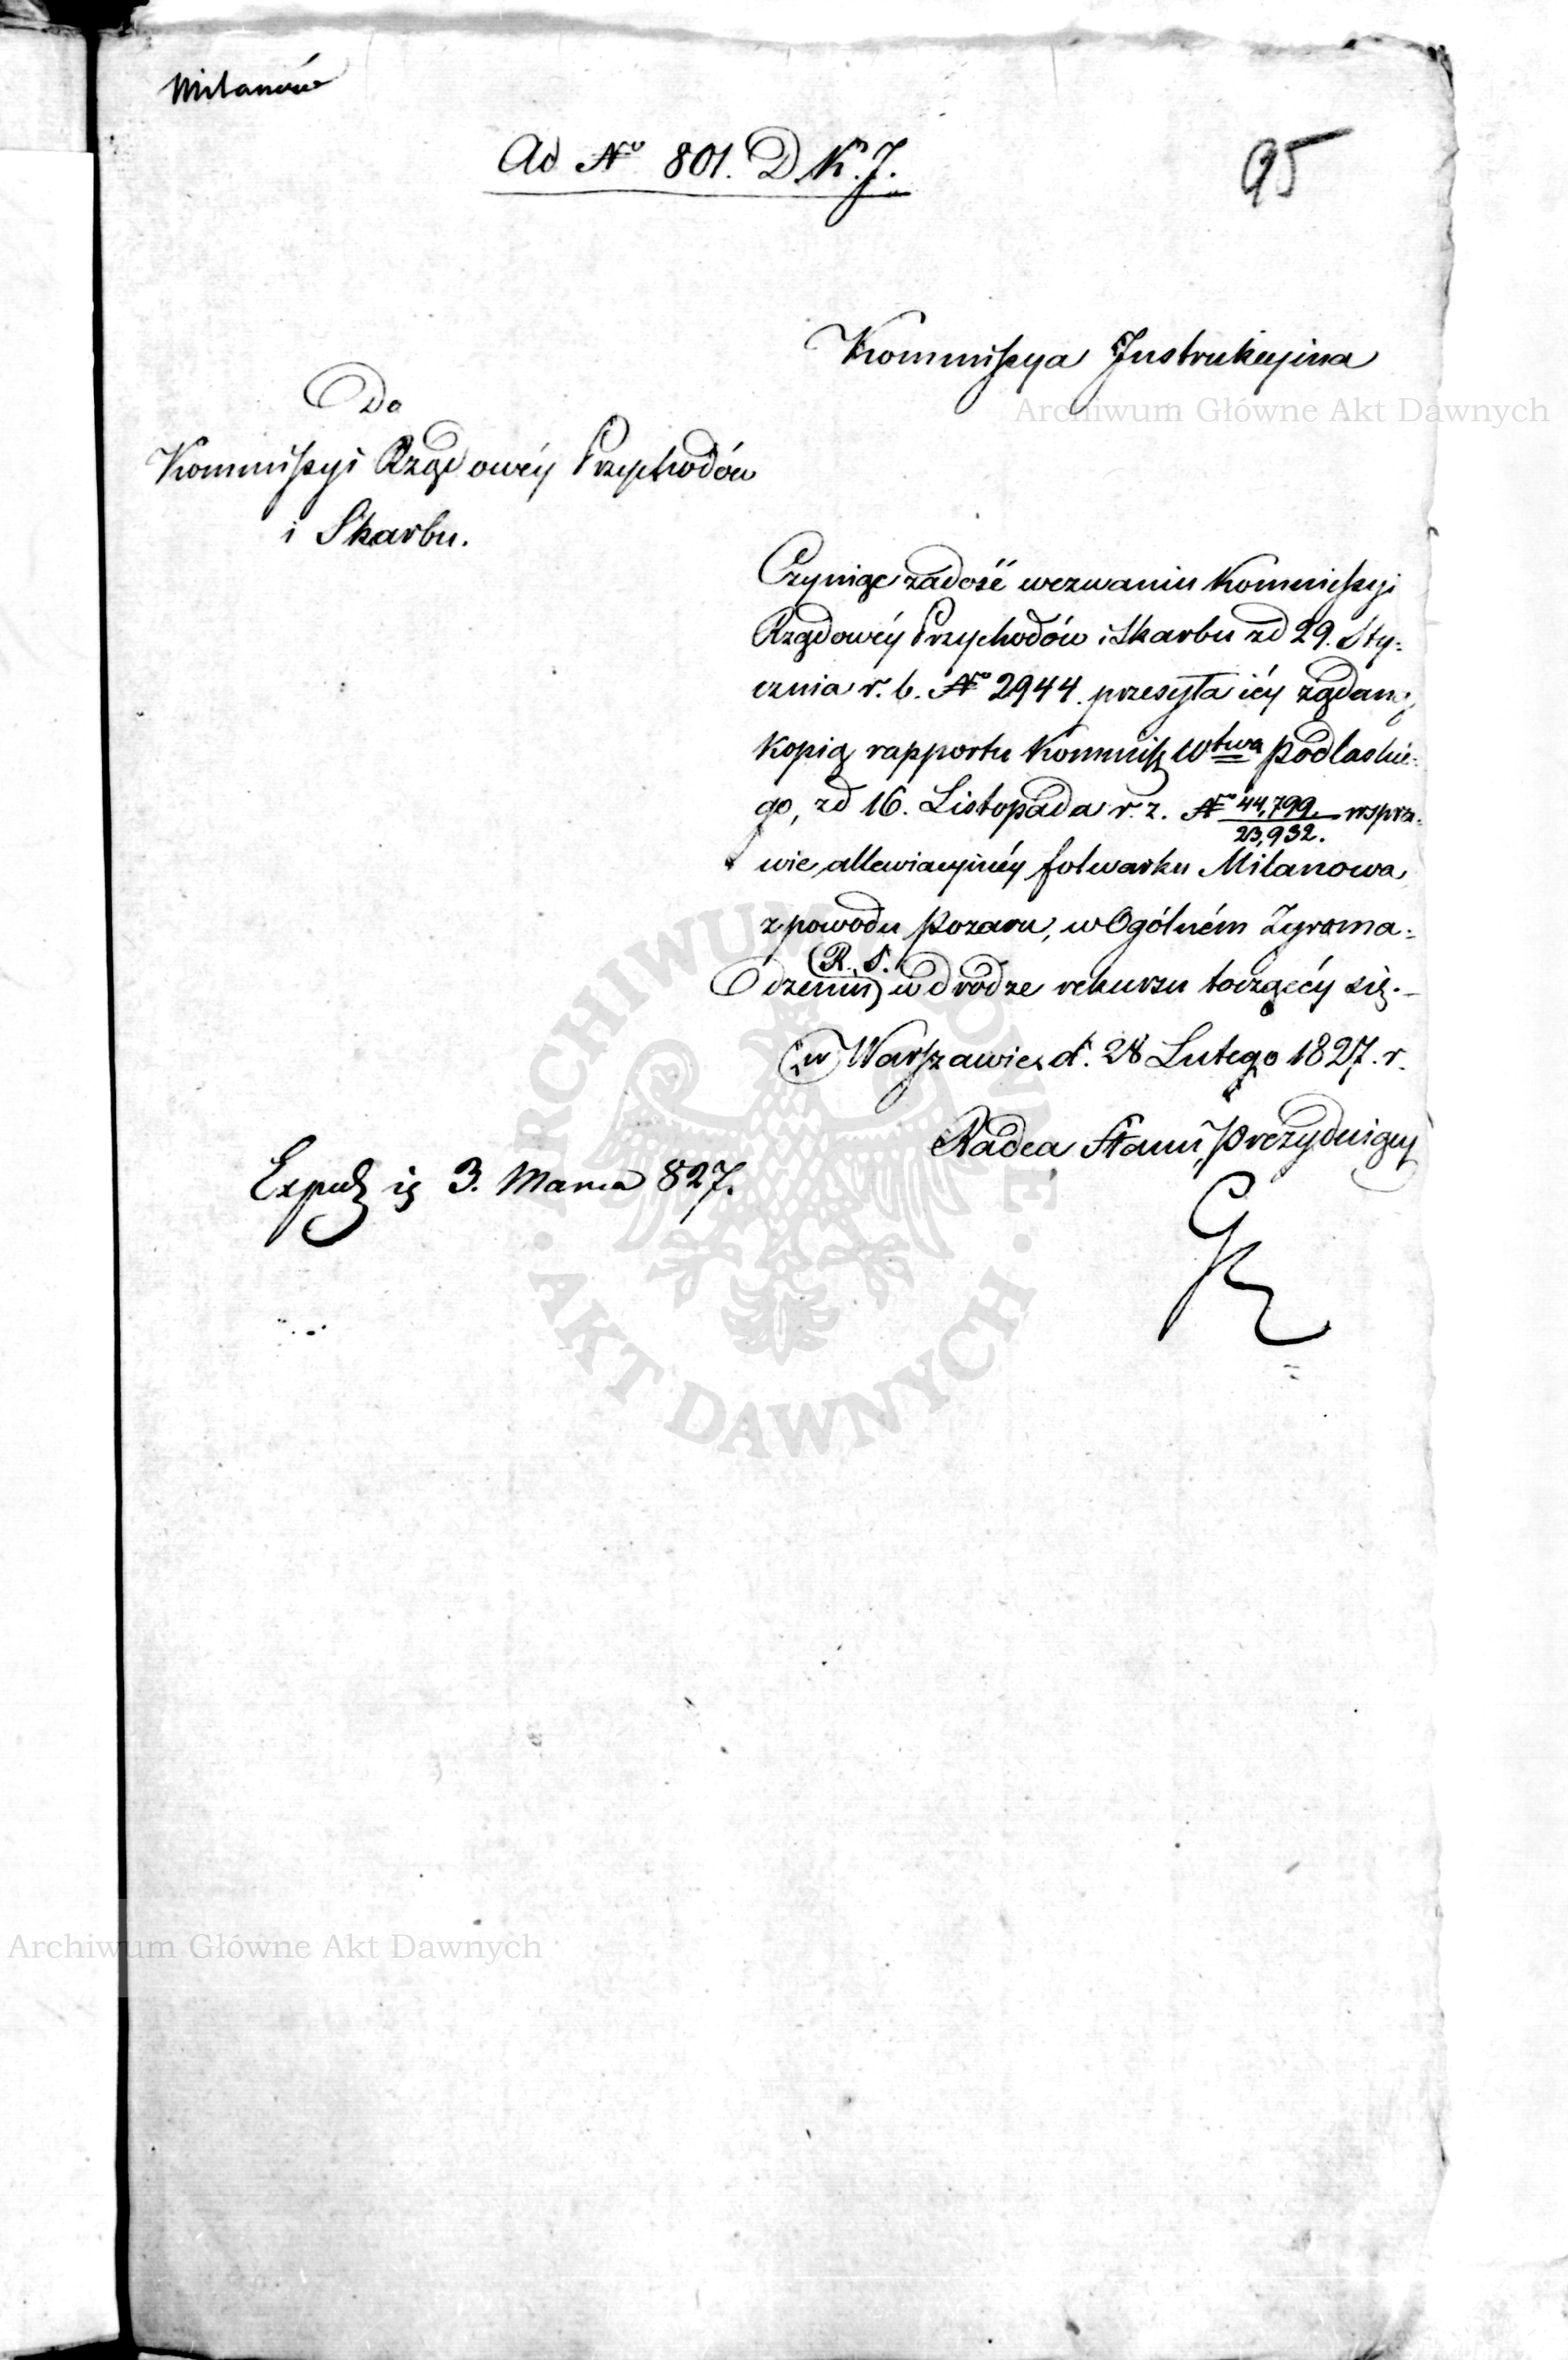 Milanów
Ad No 801. D.K.J.
95
Kommissya Instrukcyina
Do
Kommissyi Rządowéy Przychodów
i Skarbu.
Czyniąc zadość wezwaniu Kommissyi
Rządowéy Przychodów i Skarbu zd 29. Sty=
cznia r. b. No 2944. przesyła iéy żądaną
kopią rapportu Kommiss Wtwa Podlaskie=
go, zd 16. Listopada r. z. No 44,799/23,932. w spra=
wie allewiacyinéy folwarku Milanowa,
z powodu pożaru, w Ogólném Zgroma=
dzeniu (R. S.) w drodze rekursu toczącéy się.—
w Warszawie d. 28 Lutego 1827. r.
Radca Stanu Prezyduiący
Exped 3. Marca 827.
Archiwum Główne Akt Dawnych
ARCHIWUM GŁÓWNE
AKT DAWNYCH
Archiwum Główne Akt Dawnych